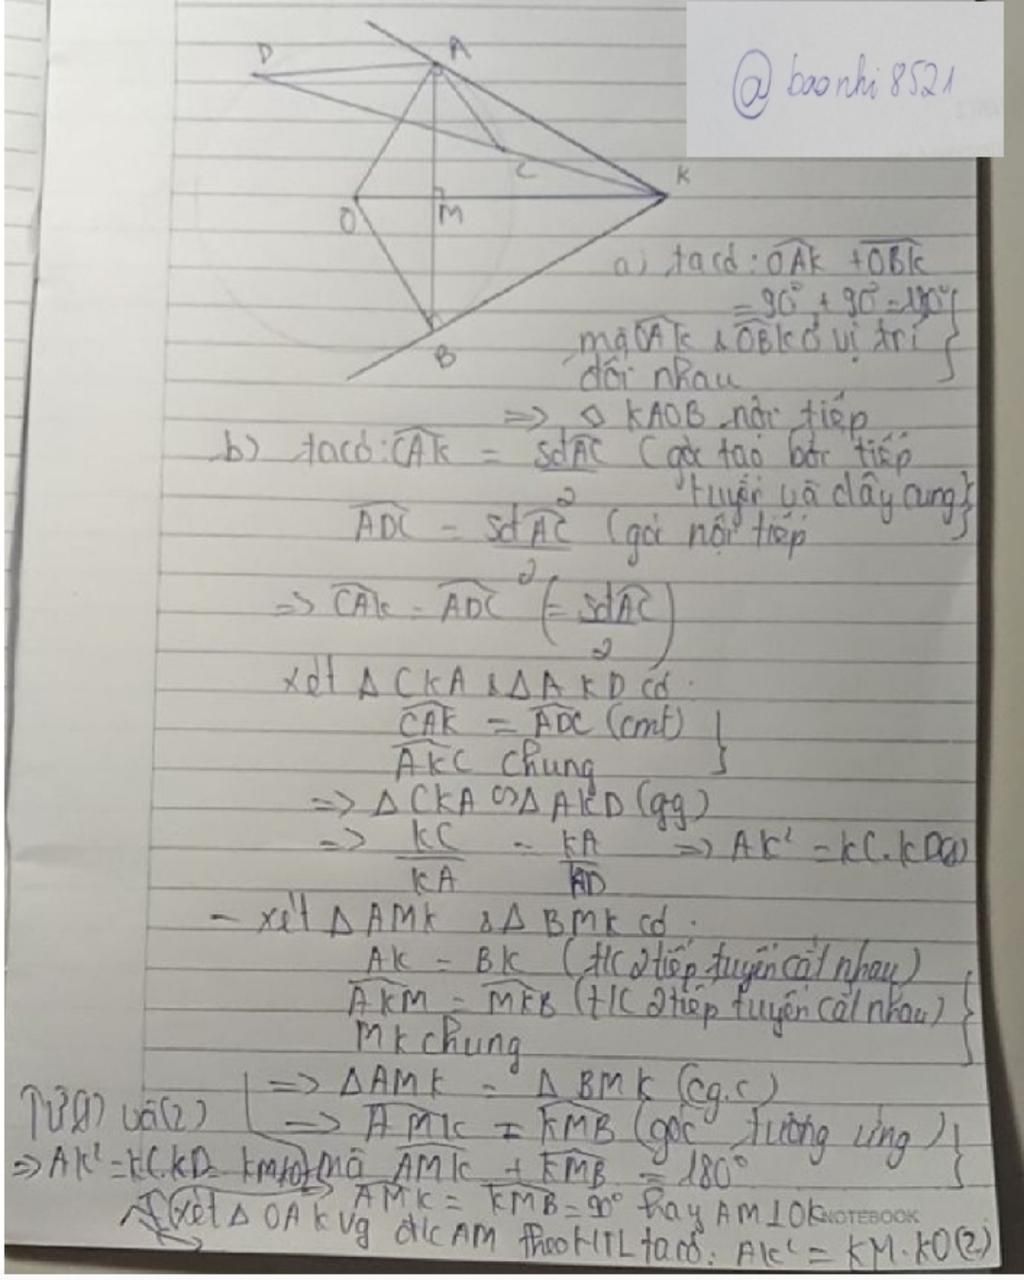 @ baonhi8521
D
A
C
K
O
M
B
a) ta có: OAK + OBK
= 90° + 90° = 180°
mà OAK & OBK ở vị trí
đối nhau
=> ◊ KAOB nội tiếp
b) ta có: CAK = sđAC/2 (góc tạo bởi tiếp
tuyến và dây cung)
ADC = sđAC/2 (góc nội tiếp
=> CAK = ADC (= sđAC/2)
xét Δ CKA & Δ AKD có:
CAK = ADC (cmt)
AKC chung
=> Δ CKA ∽ Δ AKD (gg)
=> KC/KA = KA/KD => AK² = KC.KD(1)
- xét Δ AMK & Δ BMK có:
AK = BK (t/c 2 tiếp tuyến cắt nhau)
AKM = MKB (t/c 2 tiếp tuyến cắt nhau)
MK chung
=> Δ AMK = Δ BMK (cg.c)
=> AMK = KMB (góc tương ứng)
mà AMK + KMB = 180°
AMK = KMB = 90° hay AM⊥OK
NOTEBOOK
xét Δ OAK vg đ/c AM theo HTL ta có: AK² = KM.KO(2)
Từ (1) và (2)
=> AK² = KC.KD = KM.KO